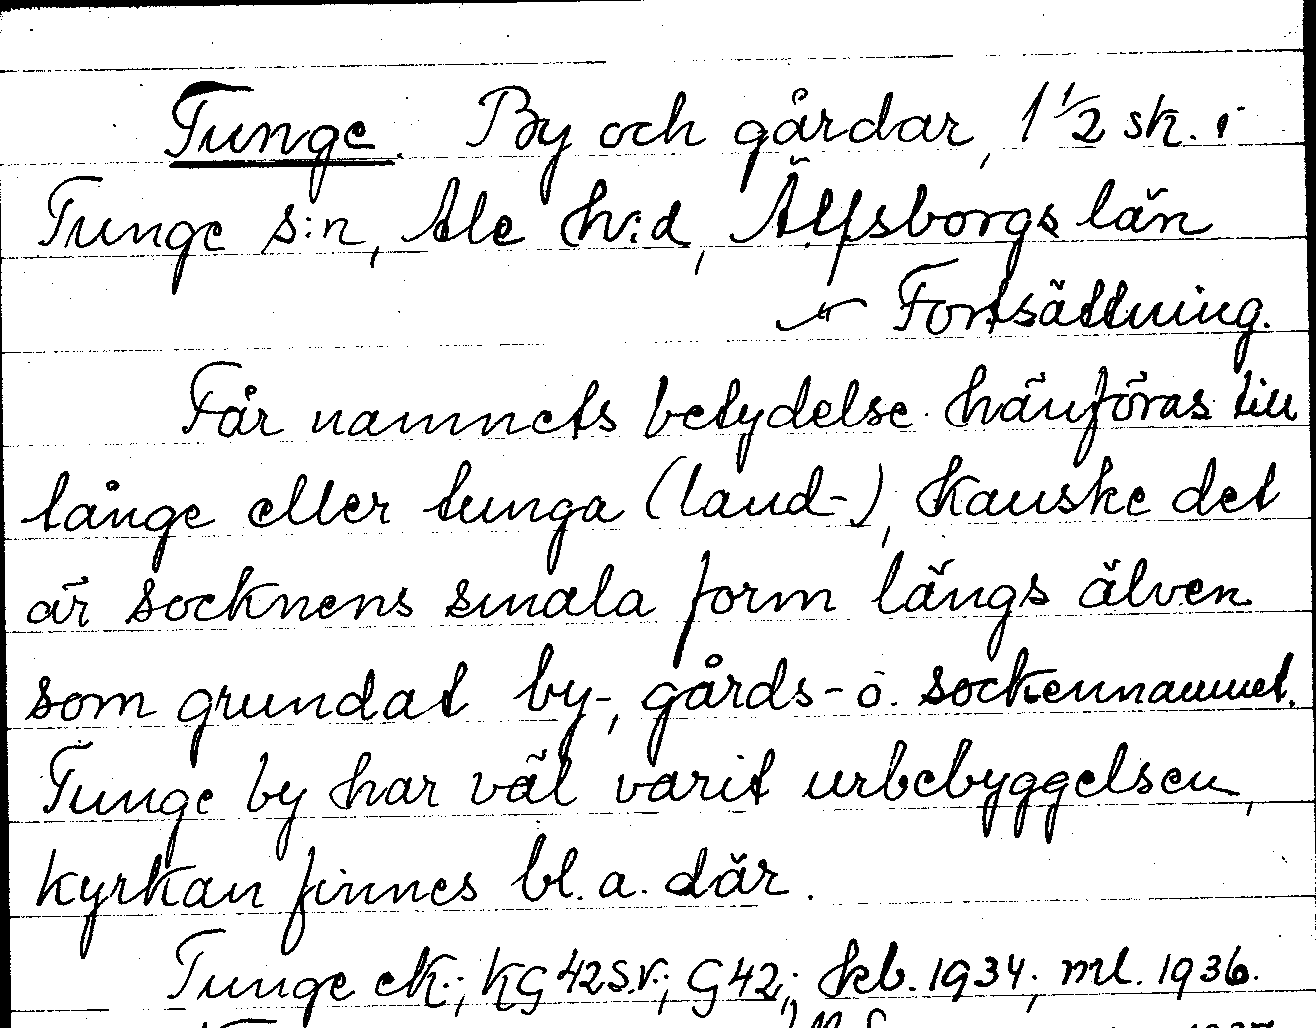 Tunge. By och gårdar, 1 1/2 sk. i
Tunge s:n, Ale h:d, Älfsborgs län
Fortsättning.
Får namnets betydelse hänföras till
tånge eller tunga (land-), kanske det
är socknens smala form längs älven
som grundat by-, gårds- o. sockennamnet.
Tunge by har väl varit urbebyggelsen,
kyrkan finnes bl. a. där.
Tunge ek.; KG 42 s.v.; G 42; skb. 1934; ml. 1936.